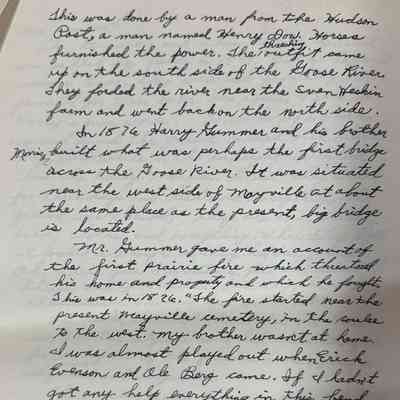 This was done by a man from the Hudson
Post, a man named Henry Dow. Horses
furnished the power. The threshing outfit came
up on the south side of the Goose River.
They forded the river near the Sven Heskin
farm and went back on the north side.
In 1876 Harry Gummer and his brother
Morris, built what was perhaps the first bridge
across the Goose River. It was situated
near the west side of Mayville at about
the same place as the present, big bridge
is located.
Mr. Gummer gave me an account of
the first prairie fire which threatened
his home and property and which he fought.
This was in 1876. "The fire started near the
present Mayville cemetery, in the coulee
to the west. My brother wasn't at home.
I was almost played out when Erick
Evenson and Ole Berg came. If I hadn't
got any help everything in this bend